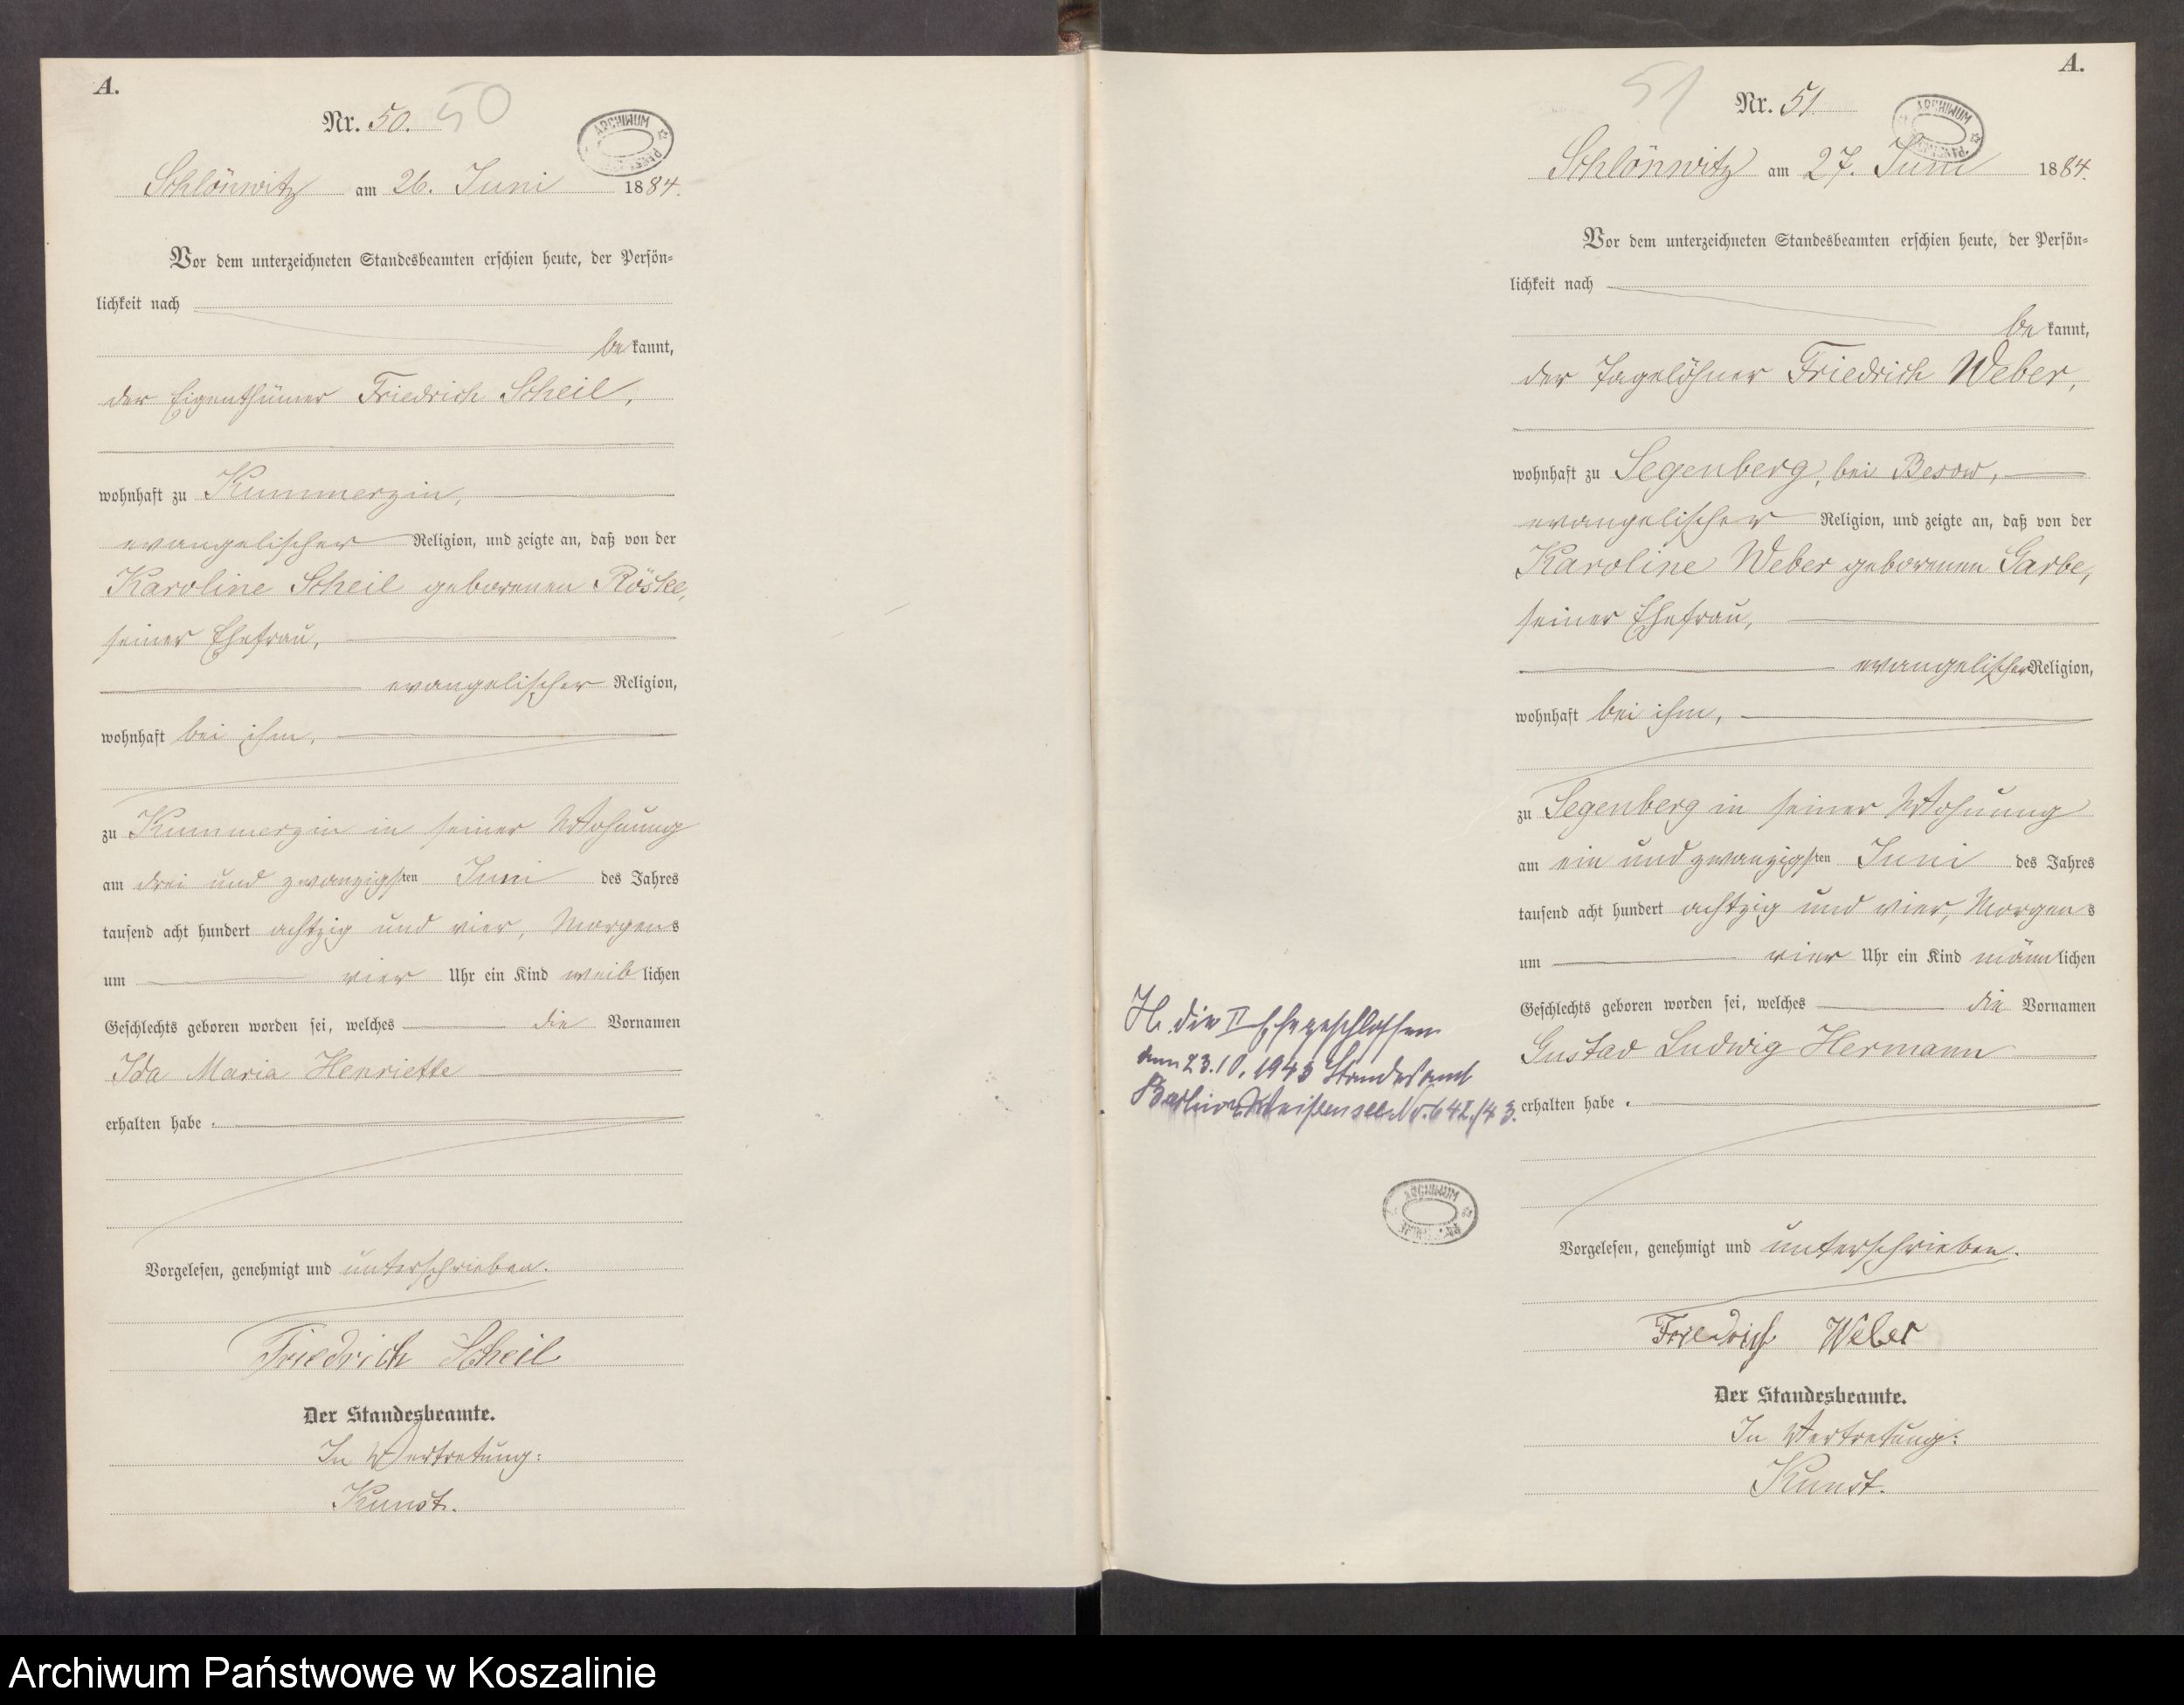 A.
Nr. 50.
50
ARCHIWUM
Schlönwitz am 26. Juni 1884.
Vor dem unterzeichneten Standesbeamten erschien heute, der Persön=
lichkeit nach
bekannt,
der Eigenthümer Friedrich Scheil,
wohnhaft zu Kummerzin,
evangelischer Religion, und zeigte an, daß von der
Karoline Scheil geborenen Röske,
seiner Ehefrau,
evangelischer Religion,
wohnhaft bei ihm,
zu Kummerzin in seiner Wohnung
am drei und zwanzigsten Juni des Jahres
tausend acht hundert achtzig und vier, Morgens
um vier Uhr ein Kind weiblichen
Geschlechts geboren worden sei, welches die Vornamen
Ida Maria Henriette
erhalten habe.
Vorgelesen, genehmigt und unterschrieben.
Friedrich Scheil
Der Standesbeamte.
In Vertretung:
Kunst.
A.
51
Nr. 51
ARCHIWUM
Schlönwitz am 27. Juni 1884.
Vor dem unterzeichneten Standesbeamten erschien heute, der Persön=
lichkeit nach
bekannt,
der Tagelöhner Friedrich Weber,
wohnhaft zu Segenberg, bei Besow,
evangelischer Religion, und zeigte an, daß von der
Karoline Weber geborenen Garbe,
seiner Ehefrau,
evangelischer Religion,
wohnhaft bei ihm,
zu Segenberg in seiner Wohnung
am ein und zwanzigsten Juni des Jahres
tausend acht hundert achtzig und vier, Morgens
um vier Uhr ein Kind männlichen
Geschlechts geboren worden sei, welches die Vornamen
Gustav Ludwig Hermann
erhalten habe.
Vorgelesen, genehmigt und unterschrieben.
Friedrich Weber
Der Standesbeamte.
In Vertretung:
Kunst.
H. die II Ehe geschlossen
am 23.10.1943 Standesamt
Berlin-Weißensee Nr. 642/43.
ARCHIWUM
Archiwum Państwowe w Koszalinie